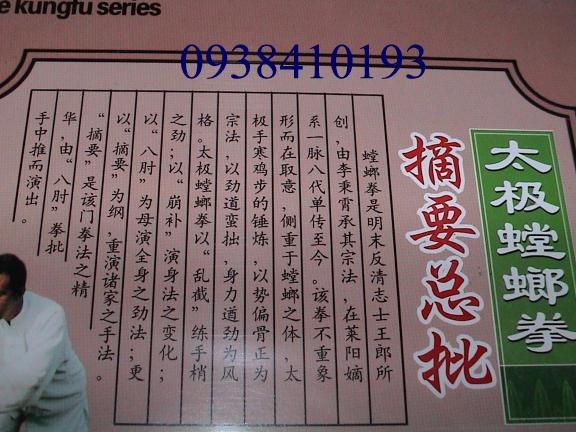 e kungfu series
0938410193
太极螳螂拳
摘要总批
螳螂拳是明末反清志士王郎所
创,由李秉霄承其宗法,在莱阳嫡
系一脉八代单传至今。该拳不重象
形而在取意,侧重于螳螂之体,太
极手寒鸡步的锤炼,以势偏骨正为
宗法,以劲道蛮拙,身力道劲为风
格。太极螳螂拳以“乱截”练手梢
之劲;以“崩补”演身法之变化;
以“八肘”为母演全身之劲法;更
以“摘要”为纲,重演诸家之手法。
“摘要”是该门拳法之精
华,由“八肘”拳批
手中推而演出。